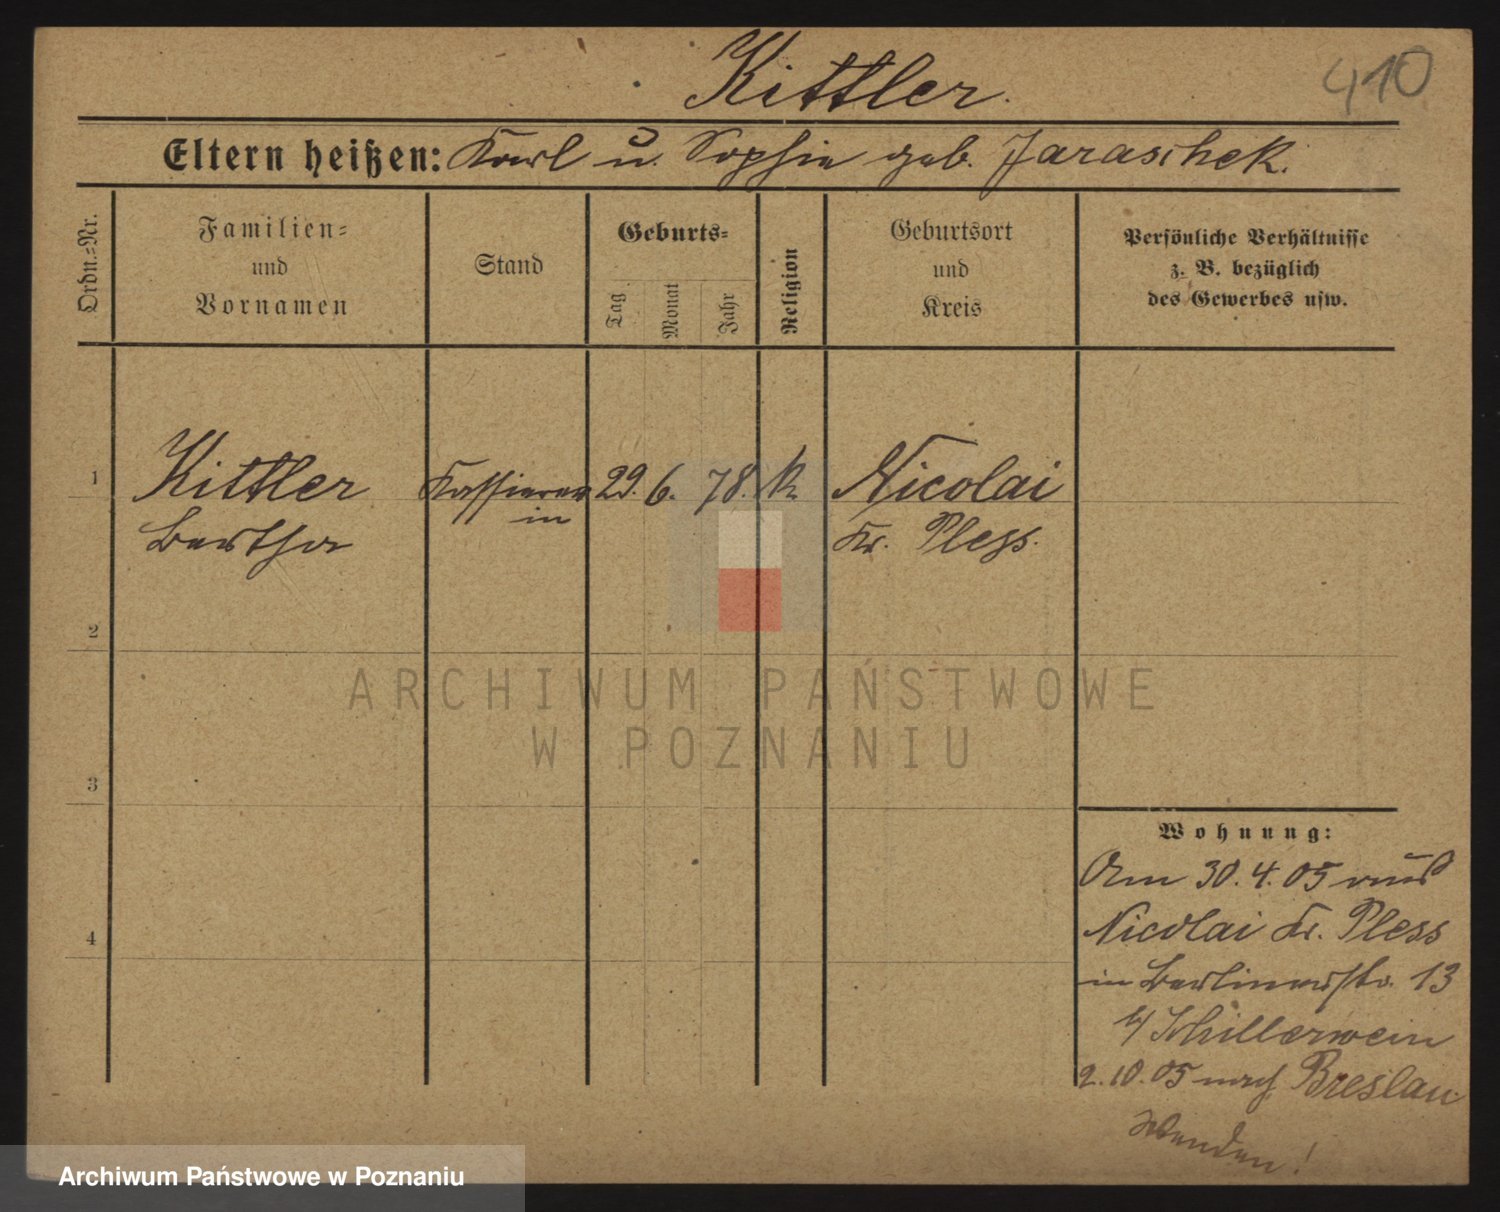 Kittler.
410
Eltern heißen: Karl u. Sophie geb. Jaraschek.
Ordn.=Nr.
Familien=
und
Vornamen
Stand
Geburts=
Tag
Monat
Jahr
Religion
Geburtsort
und
Kreis
Persönliche Verhältnisse
z. B. bezüglich
des Gewerbes usw.
1
Kittler
Bertha
Kassierer
in
29. 6. 78. k
Nicolai
Kr. Pless.
2
3
4
ARCHIWUM PAŃSTWOWE
W POZNANIU
Wohnung:
Am 30.4.05 aus
Nicolai Kr. Pless
in Berlinerstr. 13
b/ Schillerwein
2.10.05 nach Breslau
Wenden!
Archiwum Państwowe w Poznaniu